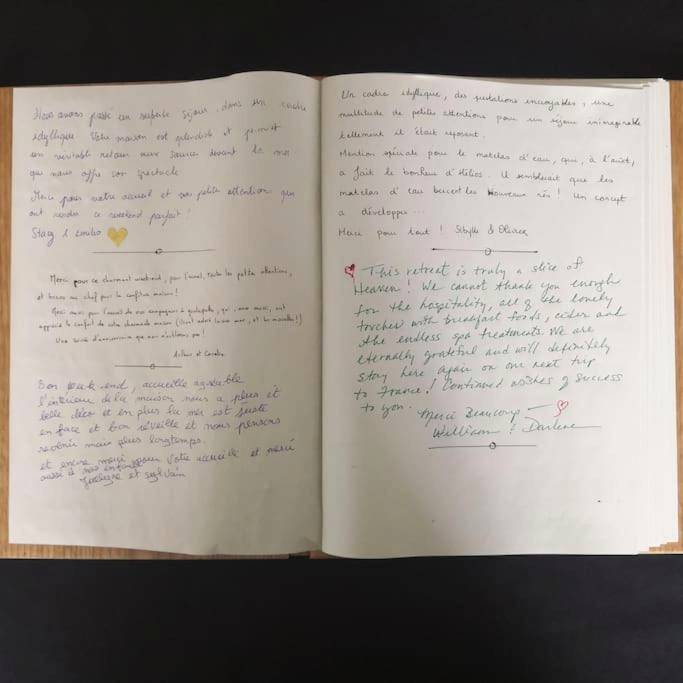 Nous avons passé un superbe séjour dans un cadre
idyllique. Votre maison est splendide et permet
un veritable retour aux sources devant la mer
qui nous offre son spectacle
Merci pour votre accueil et vos petites attention qui
ont rendus ce weekend parfait !
Stacy & Emilio
Merci pour ce charmant week-end, pour l'accueil, toutes les petites attentions,
et bravo au chef pour la confiture maison !
Merci aussi pour l'accueil de nos compagnons à quatre pattes, qui, eux aussi, ont
apprécié le confort de votre charmante maison
Une soirée d'anniversaire que nous n'oublierons pas !
Arthur et
Bon week-end, accueille agréable
l'intérieur de la maison nous a plus et
belle déco et en plus la mer est juste
en face et bon réveille et nous pensons
revenir mais plus longtemps.
et encore merci pour votre accueille et merci
aussi à nos enfants
et Sylvain
Un cadre idyllique, des prestations incroyables, une
multitude de petites attentions pour un séjour inimaginable
tellement il était reposant.
Mention spéciale pour le matelas d'eau, qui, à l'arrêt,
a fait le bonheur d'Hélios. Il semblerait que les
matelas d'eau bercent les Nouveaux nés ! Un concept
a développer...
Merci pour tout ! Sibylle & Olivier
This retreat is truly a slice of
Heaven! We cannot thank you enough
for the hospitality, all of the lovely
touches with breakfast foods, cider and
the endless spa treatments. We are
eternally grateful and will definitely
stay here again on our next trip
to France! Continued wishes of success
to you.
Merci Beaucoup —
William & Darlene